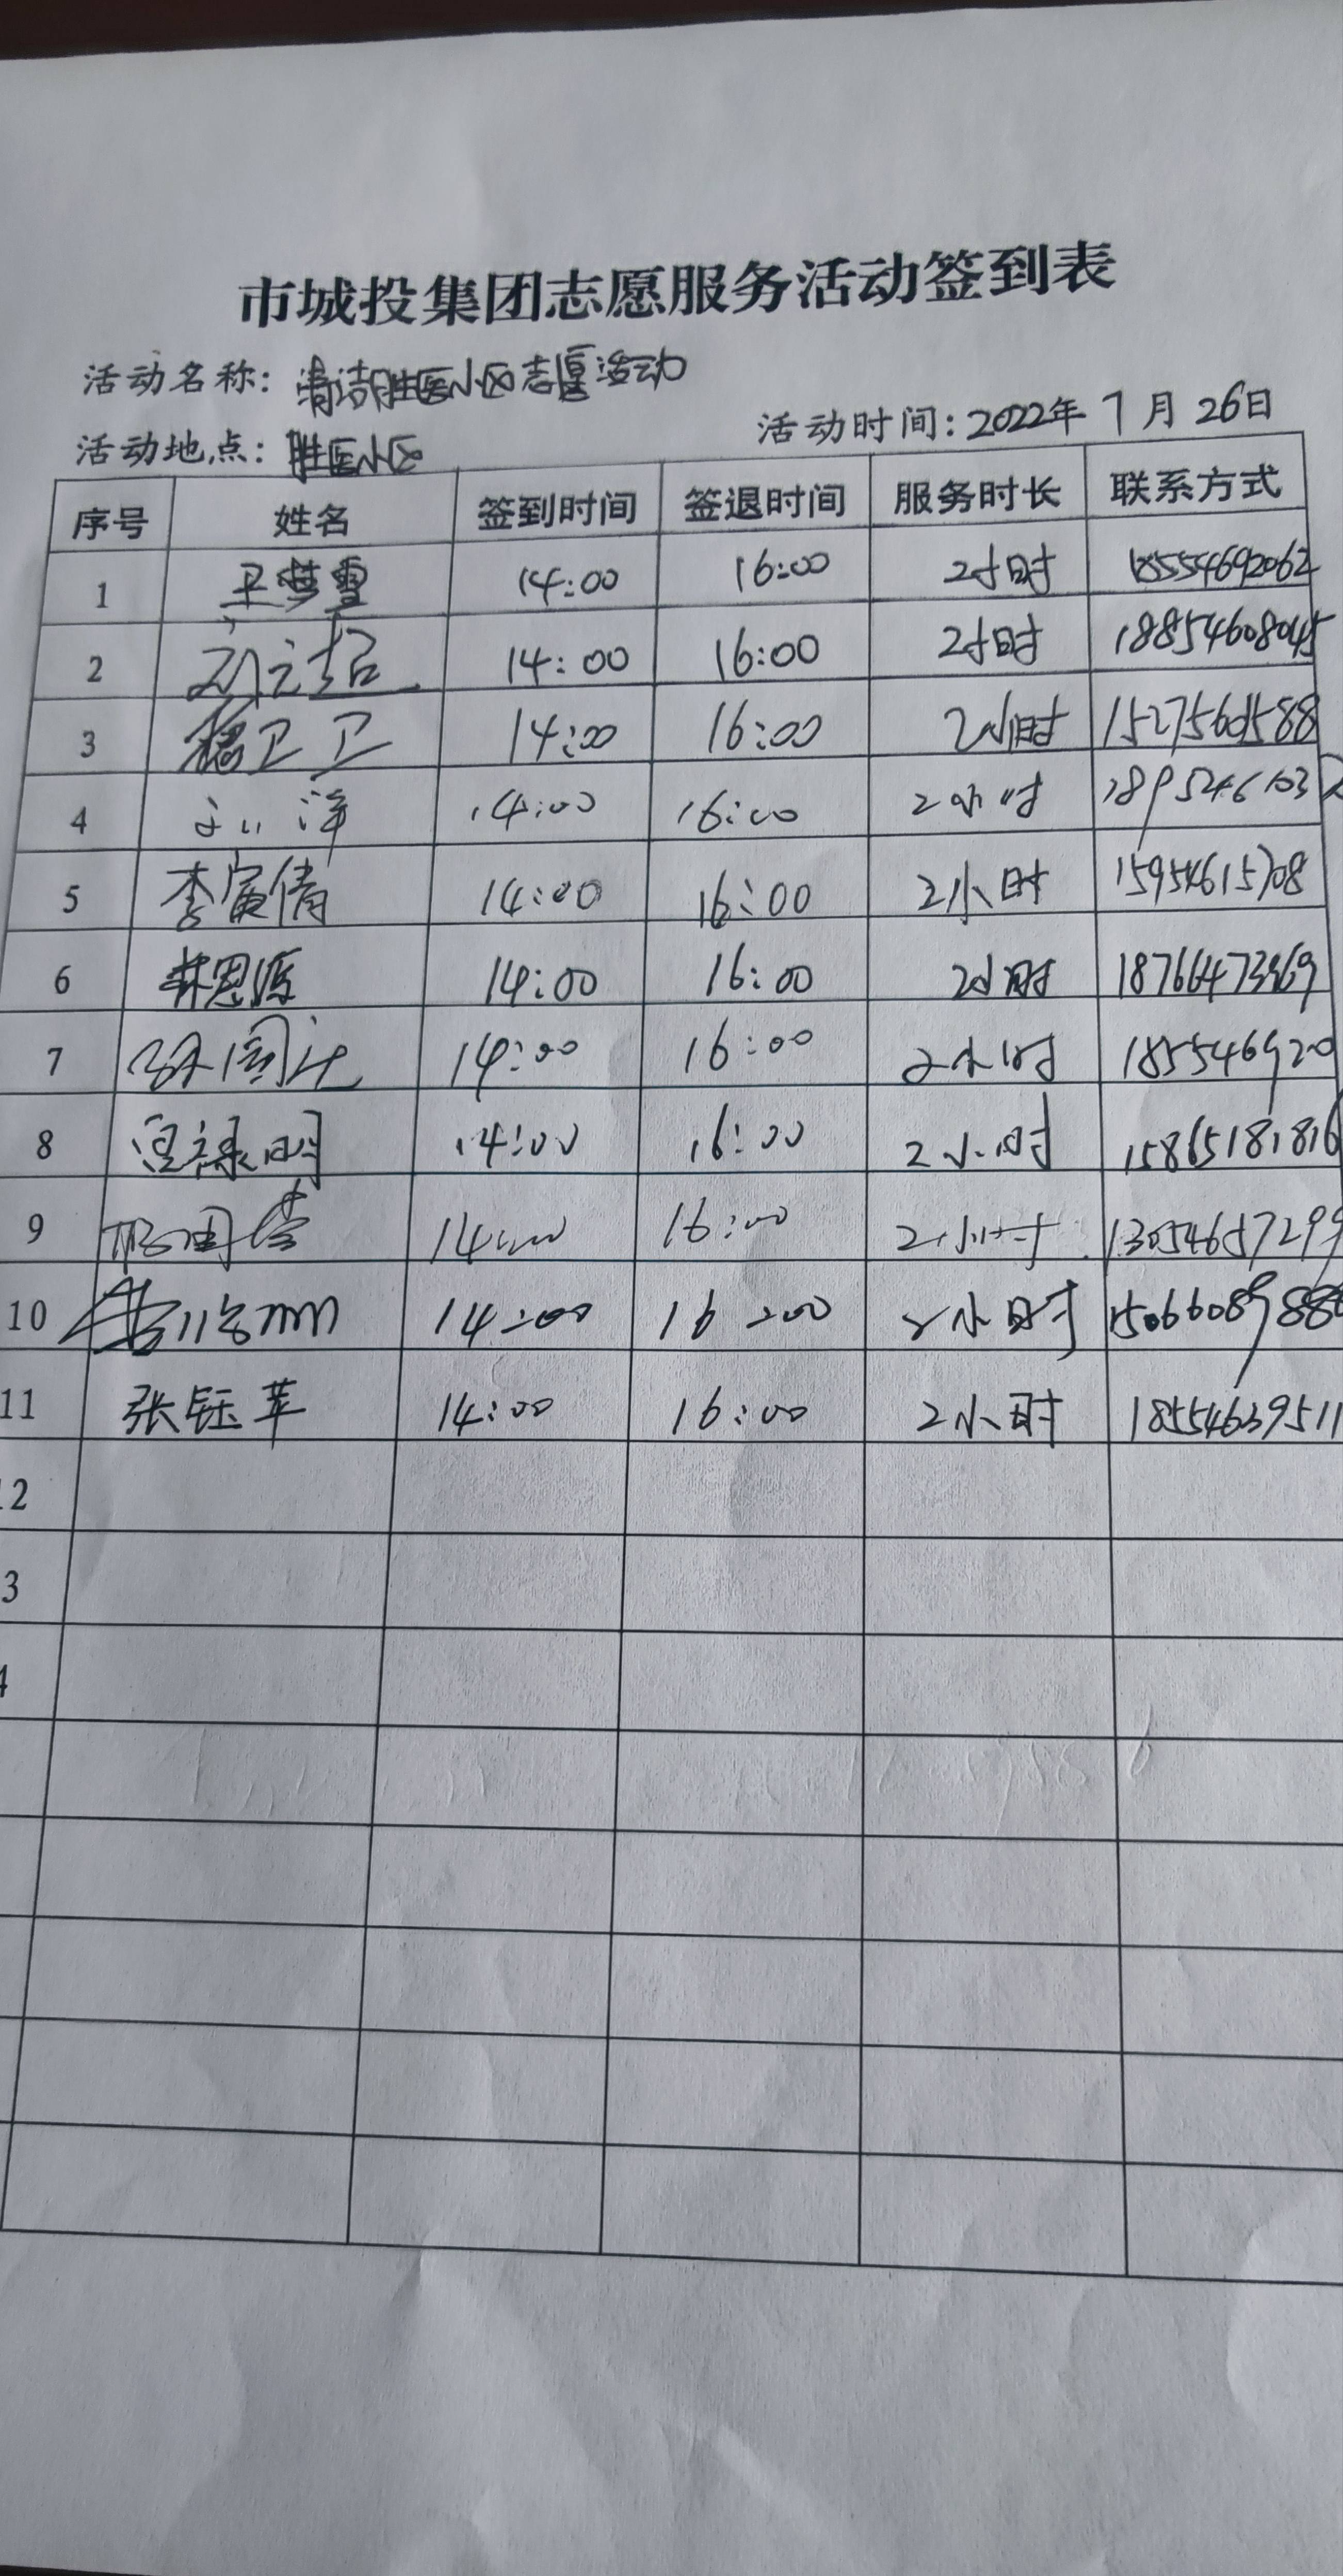 市城投集团志愿服务活动签到表
活动名称：清洁胜医小区志愿活动
活动时间：2022年7月26日
活动地点：胜医小区
序号 姓名 签到时间 签退时间 服务时长 联系方式
1 王梦雪 14:00 16:00 2小时 18554692062
2 14:00 16:00 2小时 18854608045
3 14:00 16:00 2小时 15275601588
4 14:00 16:00 2小时
5 李寅倩 14:00 16:00 2小时 15954615708
6 林思源 14:00 16:00 2小时
7 14:00 16:00 2小时 185546920
8 14:00 16:00 2小时 15865181816
9 14:00 16:00 2小时 13054657299
10 14:00 16:00 2小时
11 张钰苹 14:00 16:00 2小时 18554639511